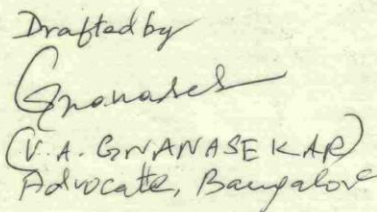 Drafted by
Gnanasek
(V. A. GNANASEKAR)
Advocate, Bangalore